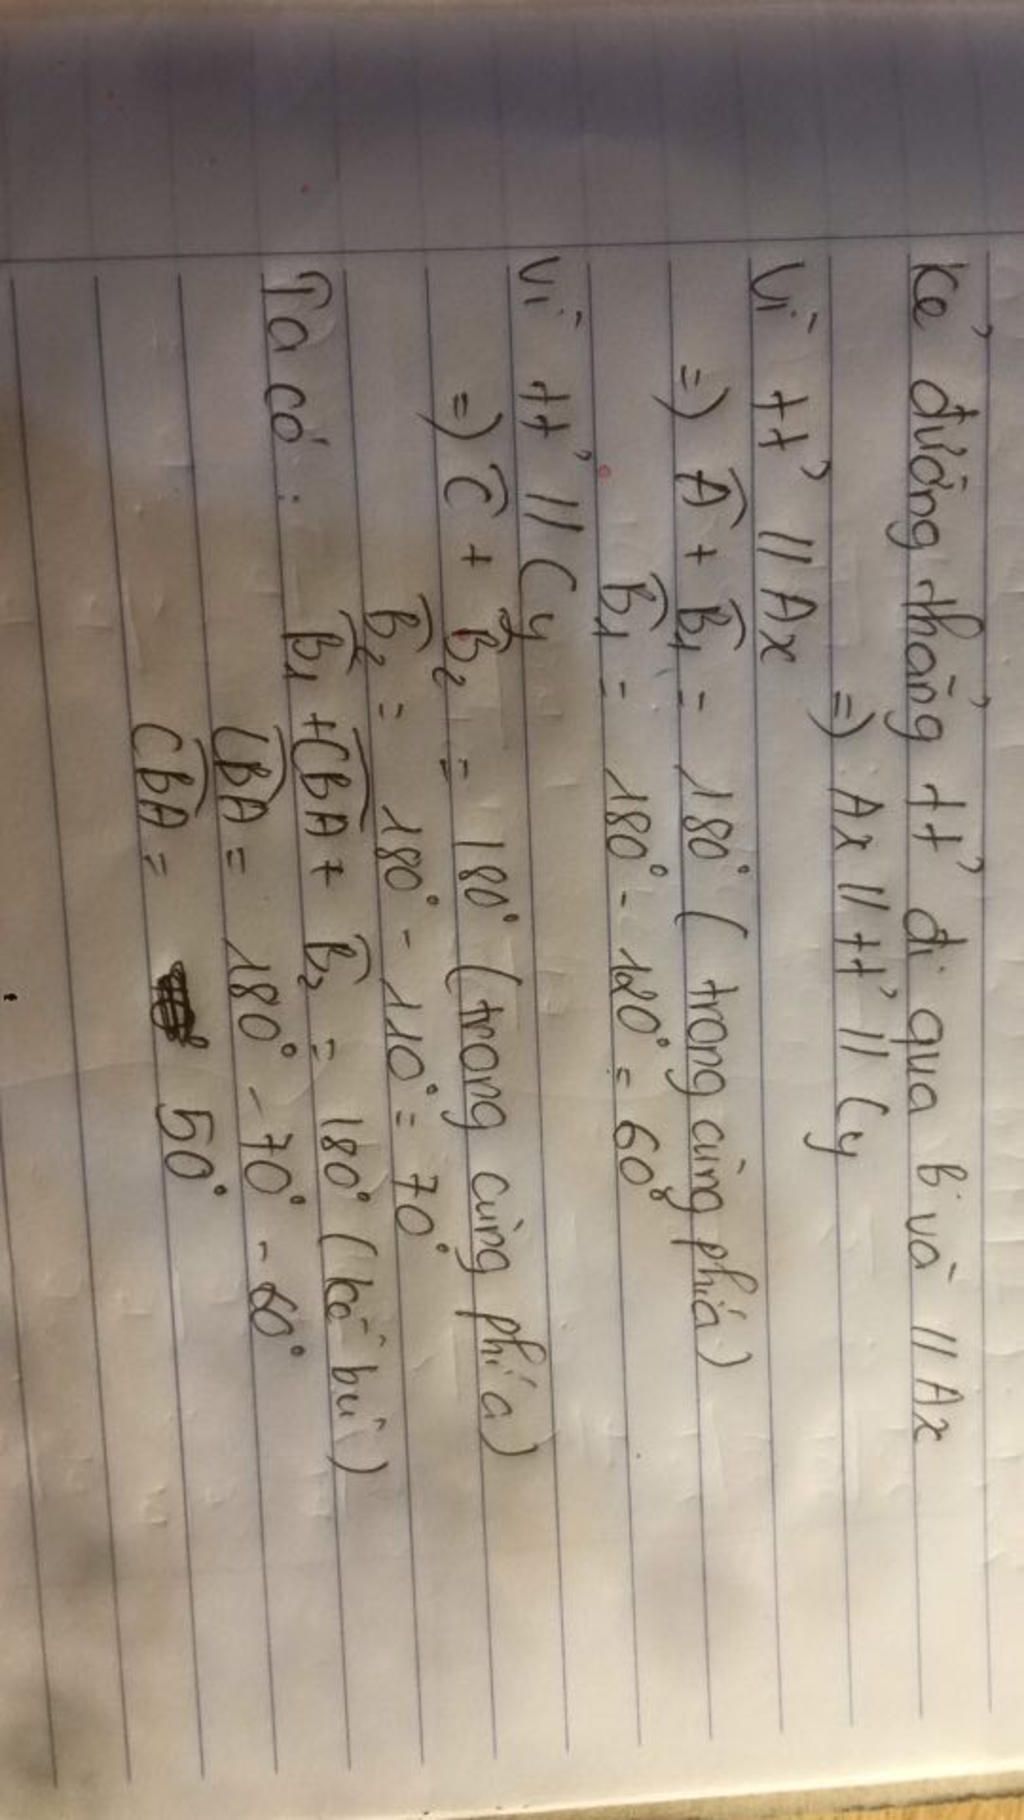 Kẻ đường thẳng tt' đi qua B và // Ax
=) Ax // tt' // Cy
Vì tt' // Ax
=) Â + B̂1 = 180° ( trong cùng phía)
B̂1 = 180° - 120° = 60°
Vì tt' // Cy
=) Ĉ + B̂2 = 180° (trong cùng phía)
B̂2 = 180° - 110° = 70°
Ta có : B̂1 + CBA + B̂2 = 180° (kề bù)
CBA = 180° - 70° - 60°
CBA = 50°